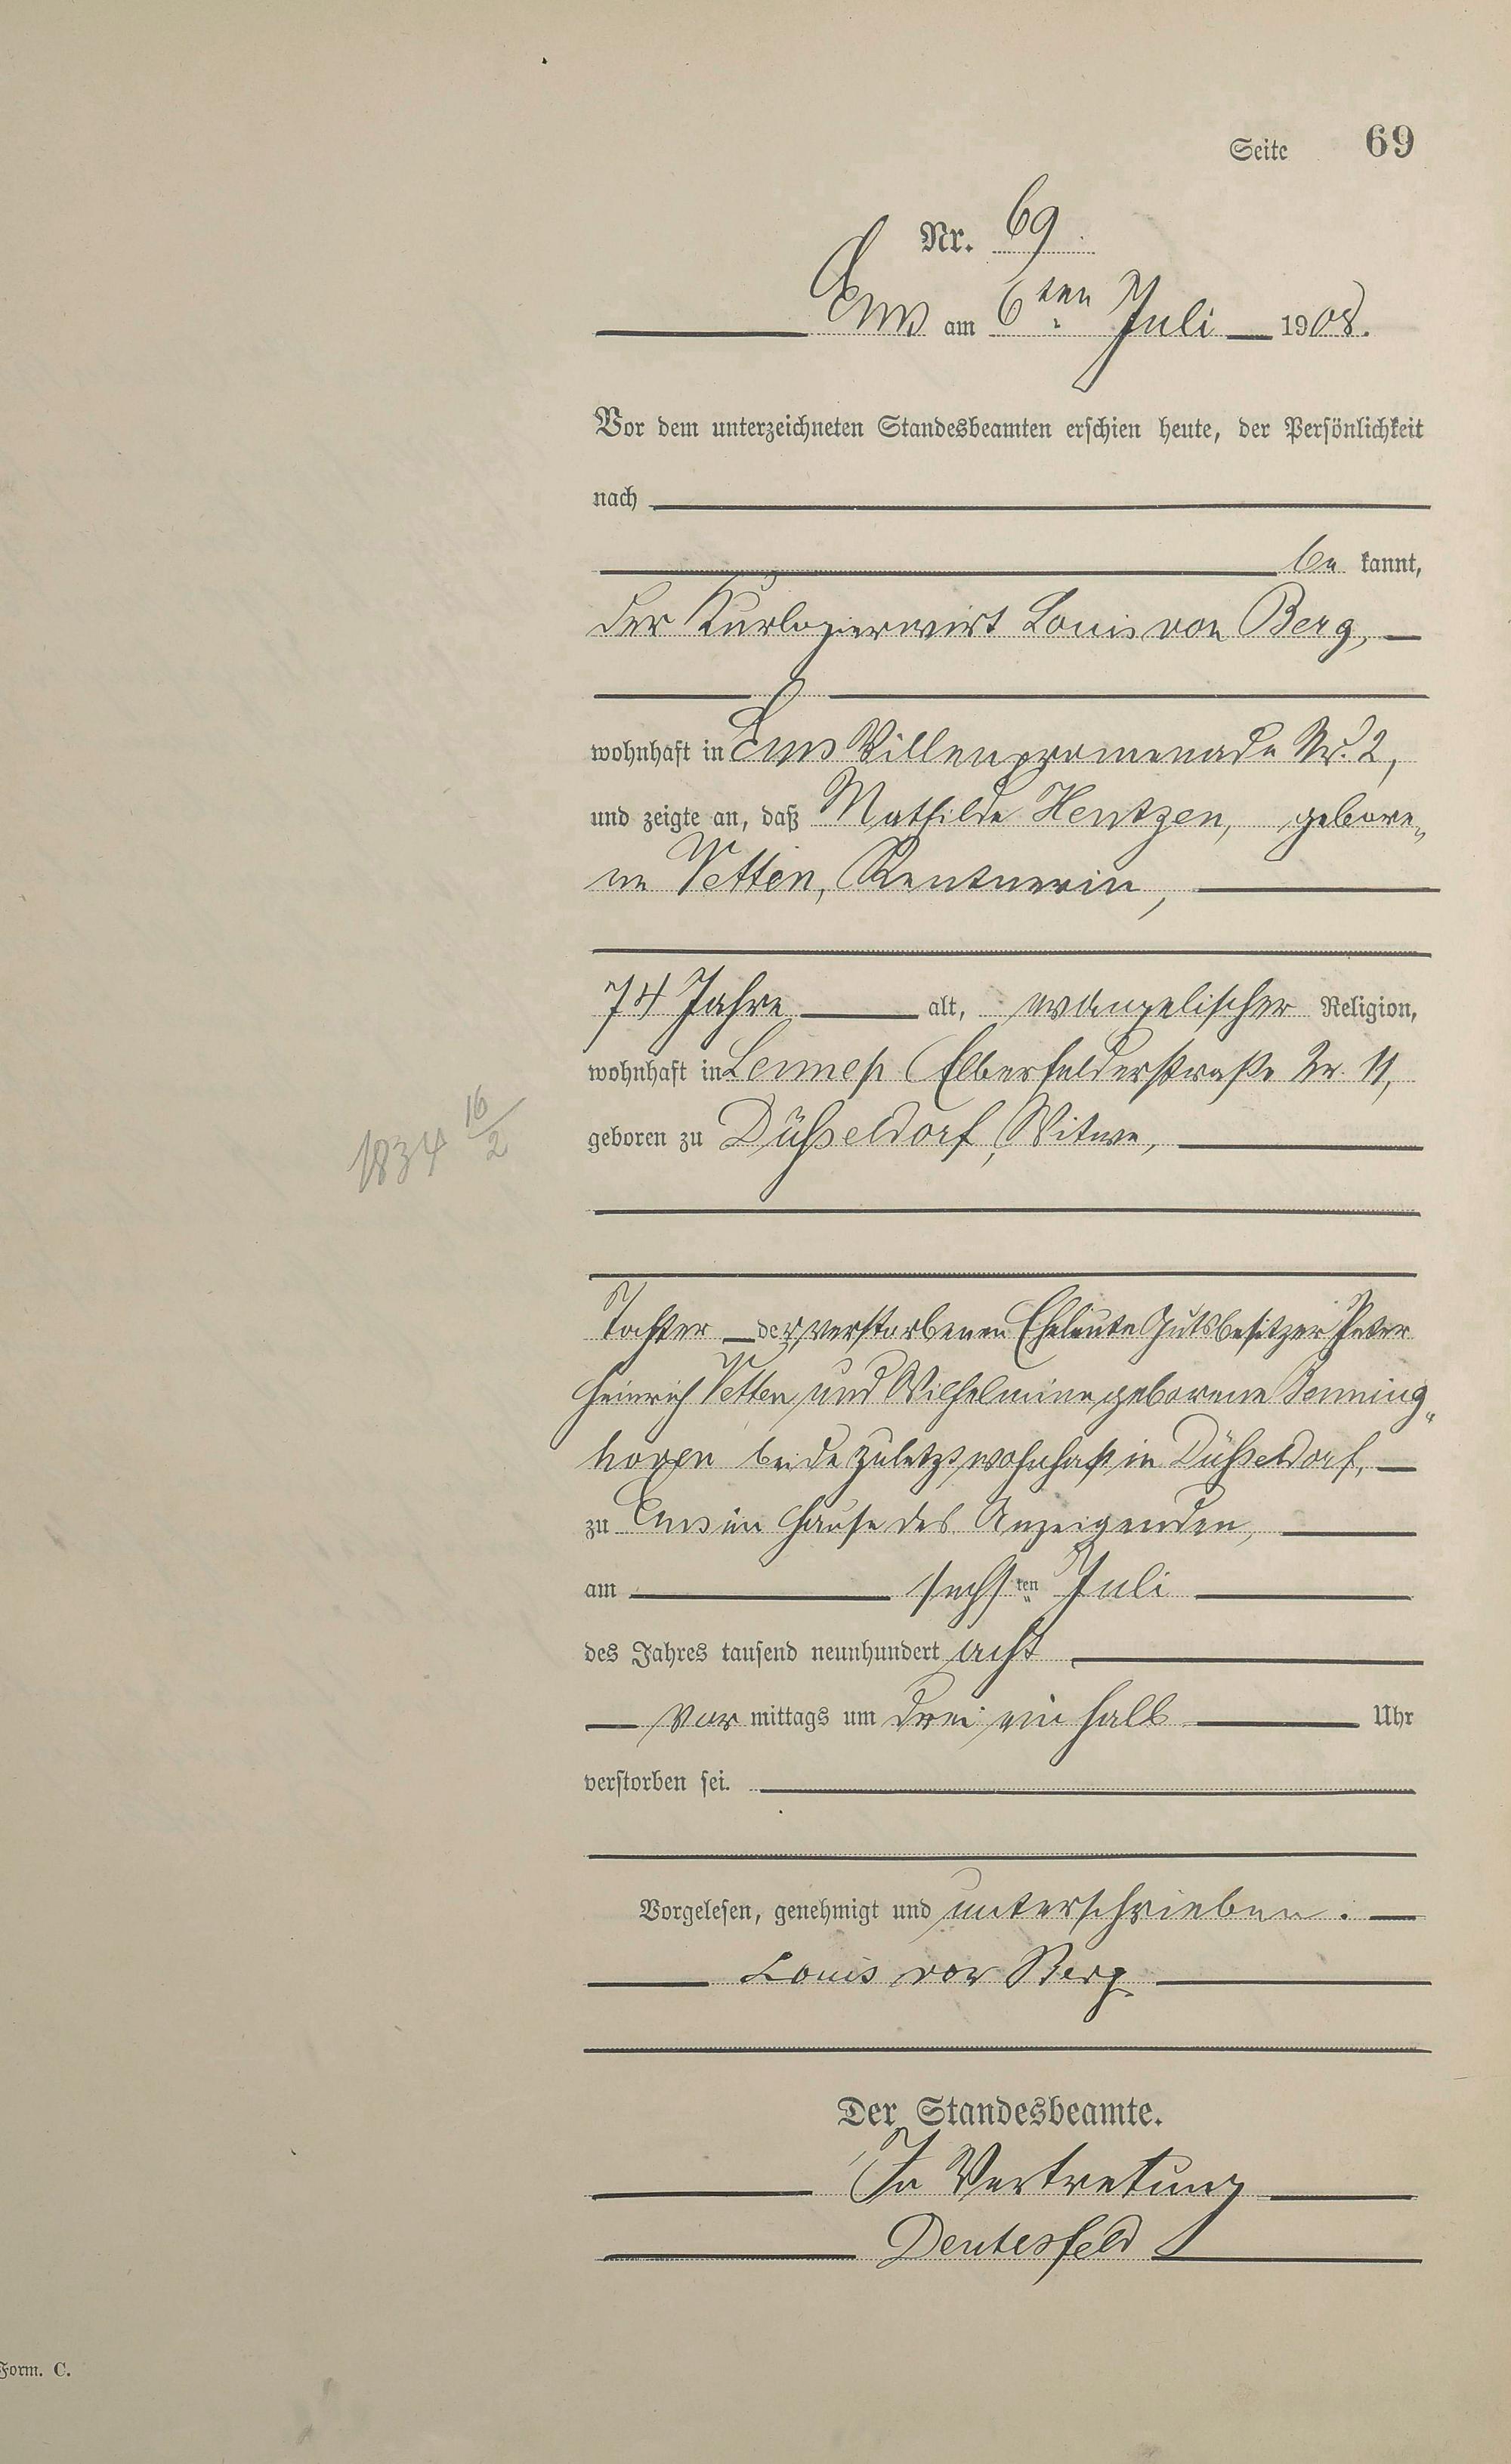 Seite 69
Nr. 69
Ems am 6ten Juli 1908.
Vor dem unterzeichneten Standesbeamten erschien heute, der Persönlichkeit
nach
be kannt,
der Kurlogierwirt Louis von Berg,
wohnhaft in Ems Villenpromenade Nr. 2,
und zeigte an, daß Mathilde Hentzen, gebore„
ne Vetten, Rentnerin,
74 Jahre alt, evangelischer Religion,
wohnhaft in Lennep Elberfelderstraße Nr. 11,
1834 16/2
geboren zu Düsseldorf, Witwe,
Tochter der verstorbenen Eheleute Gutsbesitzer Peter
Heinrich Vetten und Wilhelmine geborene Benning„
hoven beide zuletzt wohnhaft in Düsseldorf,
zu Ems im Hause des Anzeigenden,
am sechsten Juli
des Jahres tausend neunhundert acht
vor mittags um drei ein halb Uhr
verstorben sei.
Vorgelesen, genehmigt und unterschrieben.
Louis von Berg
Der Standesbeamte.
In Vertretung
Deutesfeld
Form. C.